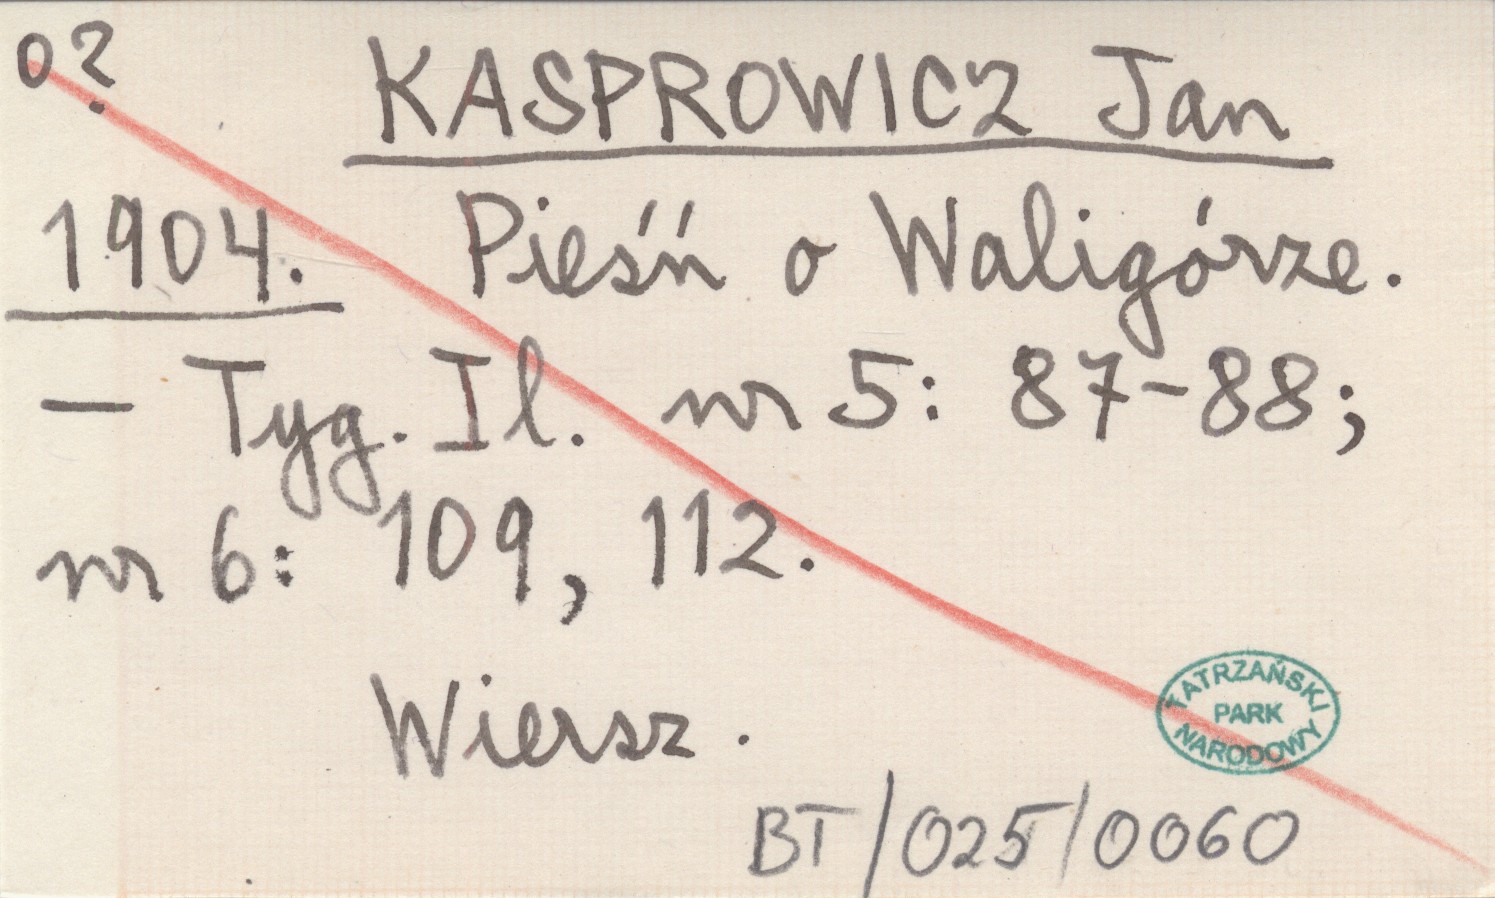 o?
KASPROWICZ Jan
1904. Pieśń o Waligórze.
— Tyg. Il. nr 5: 87-88;
nr 6: 109, 112.
Wiersz.
TATRZAŃSKI
PARK
NARODOWY
BT/025/0060